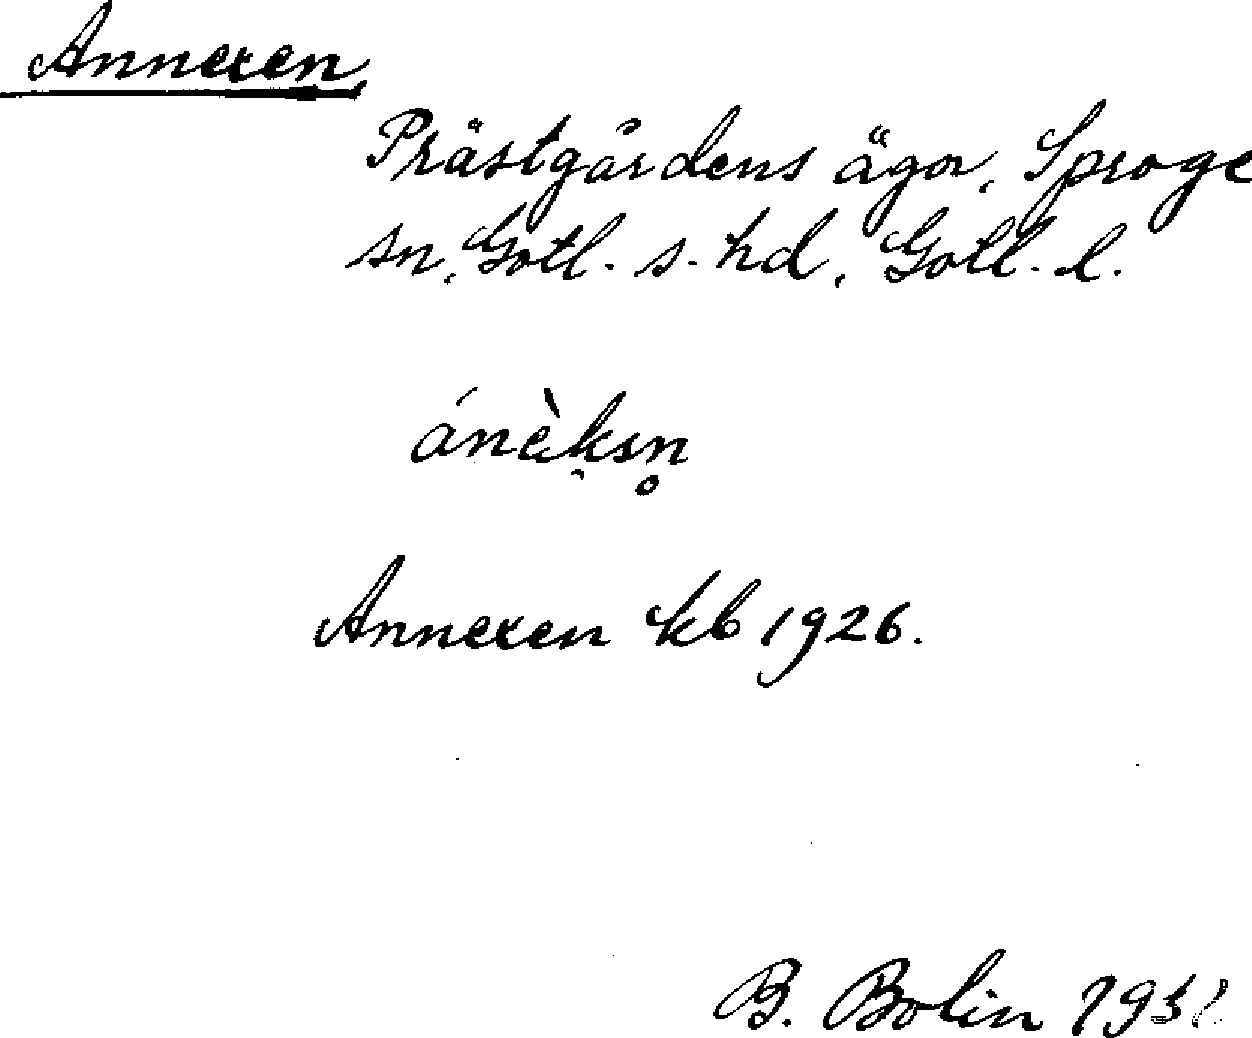 Annexen,
Prästgårdens ägor, Sproge
sn, Gotl. s. hd, Gotl. l.
ánèksn̥
Annexen kb 1926.
B. Bolin